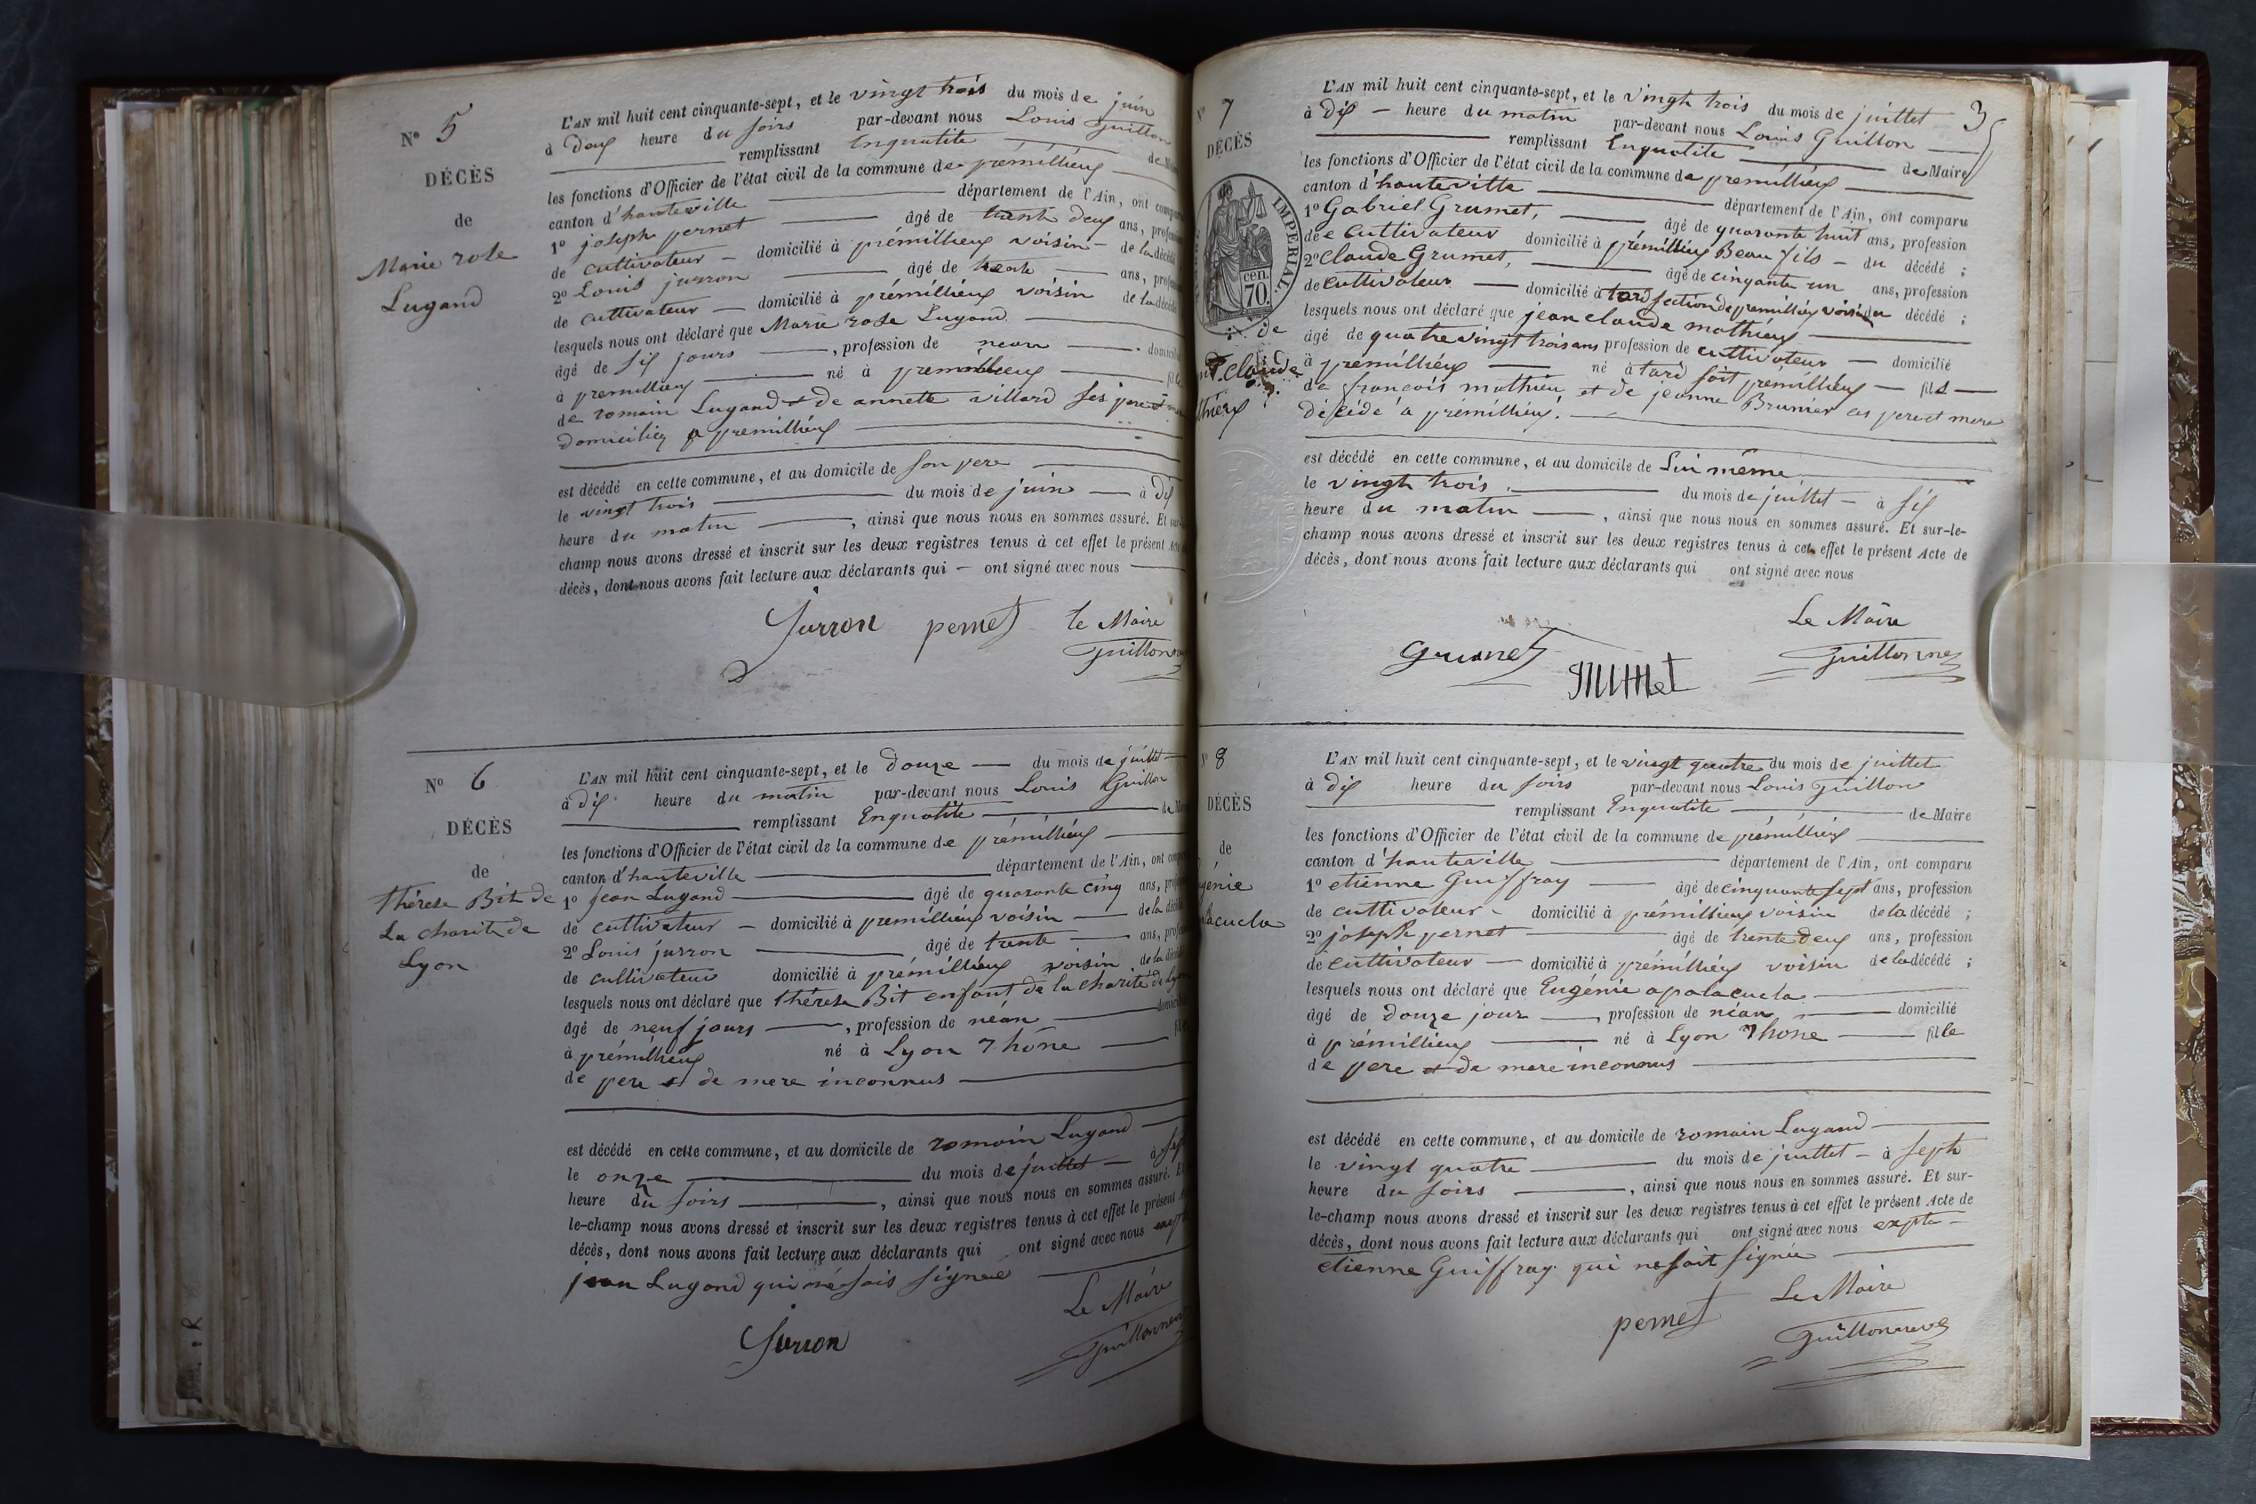 N° 5
DÉCÈS
de
Marie rose
Lugand
L'AN mil huit cent cinquante-sept, et le vingt trois du mois de juin
à deux heure du soirs par-devant nous Louis Guillon
remplissant Enqualité de
les fonctions d'Officier de l'état civil de la commune de prémillieux
canton d'hauteville département de l'Ain, ont
1° joseph pernet âgé de trente deux ans,
de cultivateur – domicilié à prémillieux voisin – de la
2° Louis jurron âgé de trente ans,
de cultivateur – domicilié à prémillieux voisin de la
lesquels nous ont déclaré que Marie rose Lugand
âgé de six jours, profession de néan
à premillieux né à premillieux
de romain Lugand et de annette villard ses pere et
domiciliez a premillieux
est décédé en cette commune, et au domicile de son pere
le vingt trois du mois de juin à dix
heure du matin, ainsi que nous nous en sommes assuré. Et
champ nous avons dressé et inscrit sur les deux registres tenus à cet effet le présent Acte
décès, dont nous avons fait lecture aux déclarants qui – ont signé avec nous
Jurron pernet le Maire
N° 6
DÉCÈS
de
thérese Bit de
La charité de
Lyon
L'AN mil huit cent cinquante-sept, et le douze du mois de juillet
à dix heure du matin par-devant nous Louis Guillon
remplissant Enqualité
les fonctions d'Officier de l'état civil de la commune de prémillieux
canton d'hauteville département de l'Ain, ont
1° jean Lugand âgé de quarante cinq ans,
de cultivateur – domicilié à premillieux voisin de la
2° Louis jurron âgé de trente ans,
de cultivateur domicilié à prémillieux voisin de la
lesquels nous ont déclaré que thérese Bit enfant de la charité de Lyon
âgé de neuf jours, profession de néan
à prémillieux né à Lyon Rhône
de pere et de mere inconnus
est décédé en cette commune, et au domicile de romain Lugand
le onze du mois de juillet – à
heure du soirs, ainsi que nous nous en sommes assuré.
le-champ nous avons dressé et inscrit sur les deux registres tenus à cet effet le présent
décès, dont nous avons fait lecture aux déclarants qui ont signé avec nous
jean Lugand qui ne sais signée
Le Maire
Jurron
7
35
DÉCÈS
IMPERIAL.
cen.
70.
de
claude
L'AN mil huit cent cinquante-sept, et le vingt trois du mois de juillet
à dix – heure du matin par-devant nous Louis Guillon
remplissant Enqualite de Maire
les fonctions d'Officier de l'état civil de la commune de premillieux
canton d'hauteville département de l'Ain, ont comparu
1° Gabriel Grumet, âgé de quarante huit ans, profession
de cultivateur domicilié à prémillieux Beau fils – du décédé ;
2° claude Grumet, âgé de cinquante un ans, profession
de cultivateur – domicilié à tard section de premillieux voisin du décédé ;
lesquels nous ont déclaré que jean claude mathieux
âgé de quatre vingt trois ans profession de cultivateur – domicilié
à premillieux né à tard soit prémillieux – fils
de françois mathieu et de jeanne Brunier ces pere et mere
décédé a prémillieux.
est décédé en cette commune, et au domicile de Lui même
le vingt trois du mois de juillet – à six
heure du matin, ainsi que nous nous en sommes assuré. Et sur-le-
champ nous avons dressé et inscrit sur les deux registres tenus à cet effet le présent Acte de
décès, dont nous avons fait lecture aux déclarants qui ont signé avec nous
Le Maire
Grumet
8
DÉCÈS
de
L'AN mil huit cent cinquante-sept, et le vingt quatre du mois de juillet
à dix heure du soirs par-devant nous Louis Guillon
remplissant Enqualite de Maire
les fonctions d'Officier de l'état civil de la commune de prémillieux
canton d'hauteville département de l'Ain, ont comparu
1° etienne Guiffray âgé de cinquante sept ans, profession
de cultivateur – domicilié à prémillieux voisin de la décédé ;
2° joseph pernet âgé de trente deux ans, profession
de cultivateur – domicilié à prémillieux voisin de la décédé ;
lesquels nous ont déclaré que Eugénie apalacucla
âgé de douze jour, profession de néan domicilié
à prémillieux né à Lyon Rhône fille
de pere et de mere inconnus
est décédé en cette commune, et au domicile de romain Lugand
le vingt quatre du mois de juillet – à septh
heure du soirs, ainsi que nous nous en sommes assuré. Et sur-
le-champ nous avons dressé et inscrit sur les deux registres tenus à cet effet le présent Acte de
décès, dont nous avons fait lecture aux déclarants qui ont signé avec nous expte –
etienne Guiffray qui ne sait signée
Le Maire
pernet